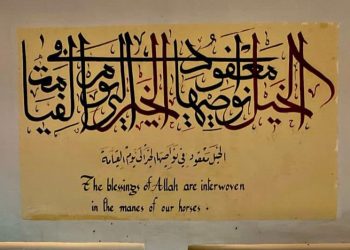 الخيل معقود في نواصيها الخير إلى يوم القيامة
الخيل معقود في نواصيها الخير إلى يوم القيامة
The blessings of Allah are interwoven
in the manes of our horses.